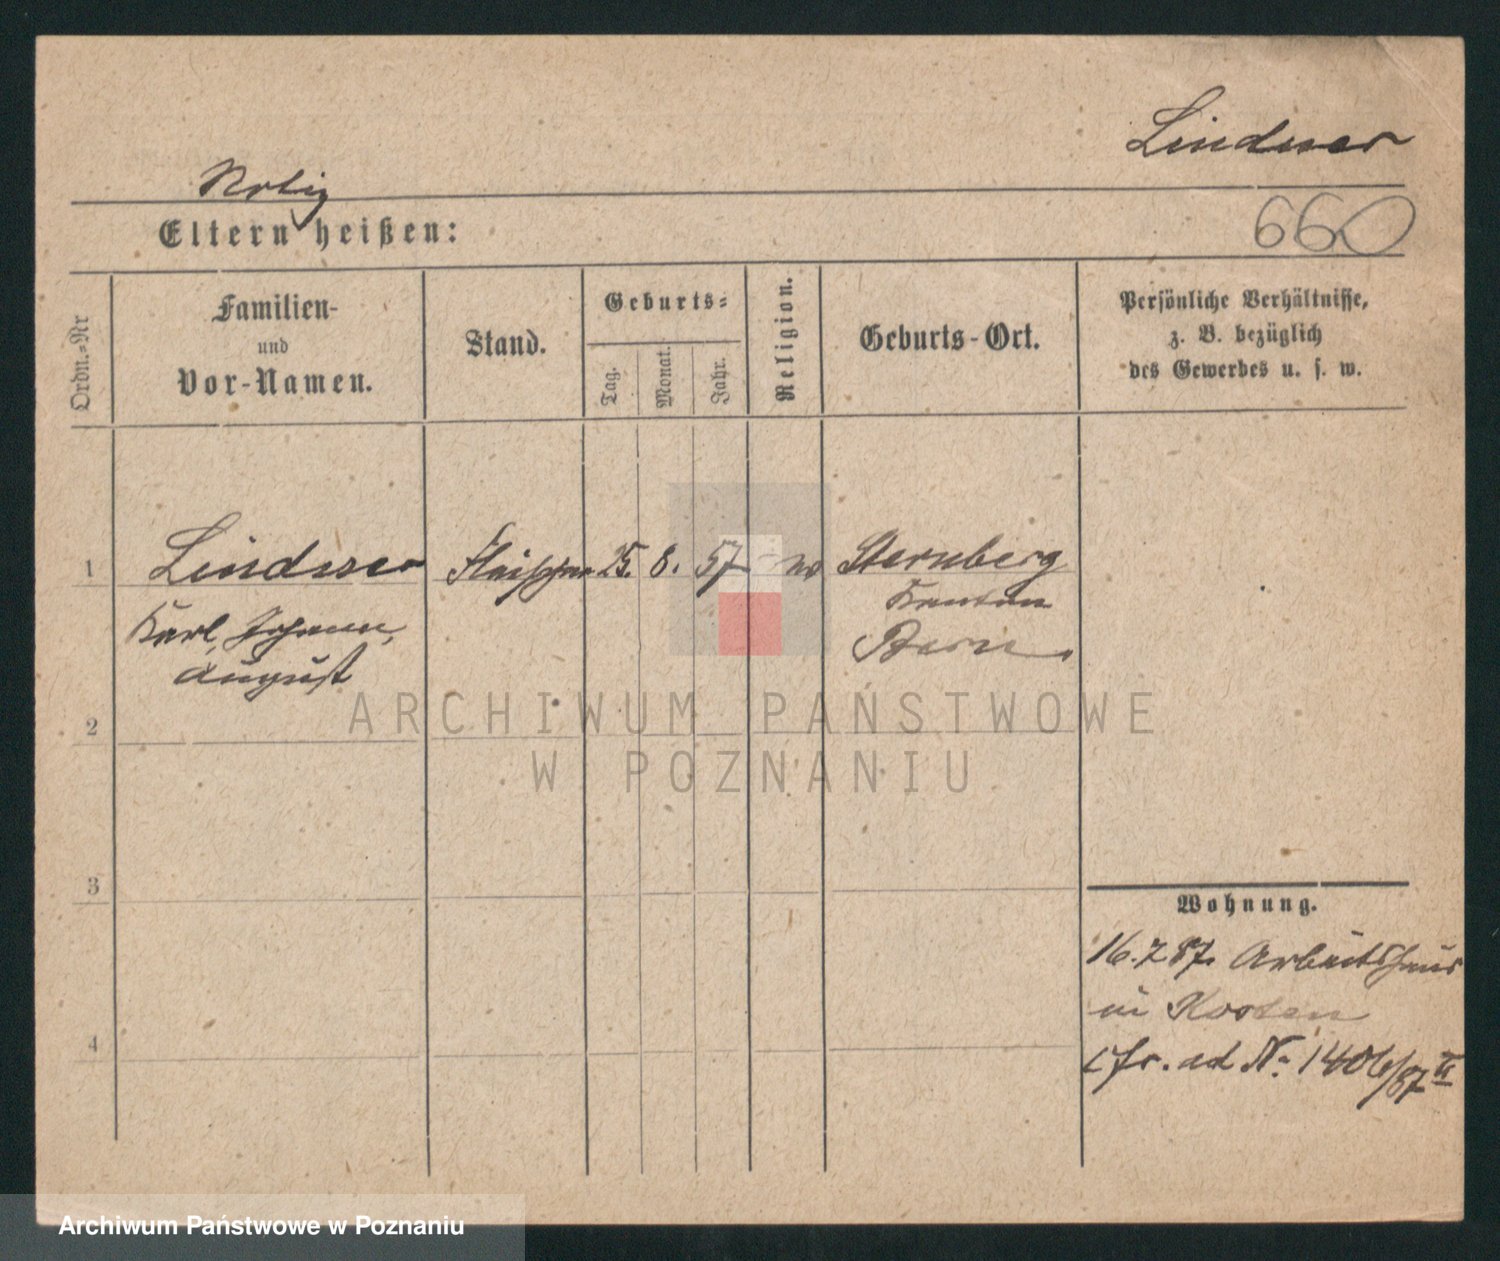 Lindner
Notiz
660
Eltern heißen:
Ordn.-Nr
Familien-
und
Vor-Namen.
Stand.
Geburts-
Tag.
Monat.
Jahr.
Religion.
Geburts-Ort.
Persönliche Verhältnisse,
z. B. bezüglich
des Gewerbes u. s. w.
1
Lindner
Karl, Johann,
August
Fleischer
25. 8. 57
Sternberg
Kanton
Bern.
2
3
4
Wohnung.
16.7 87. Arbeitshaus
in Kosten
cfr. ad No. 1406/87 II
ARCHIWUM PAŃSTWOWE
W POZNANIU
Archiwum Państwowe w Poznaniu